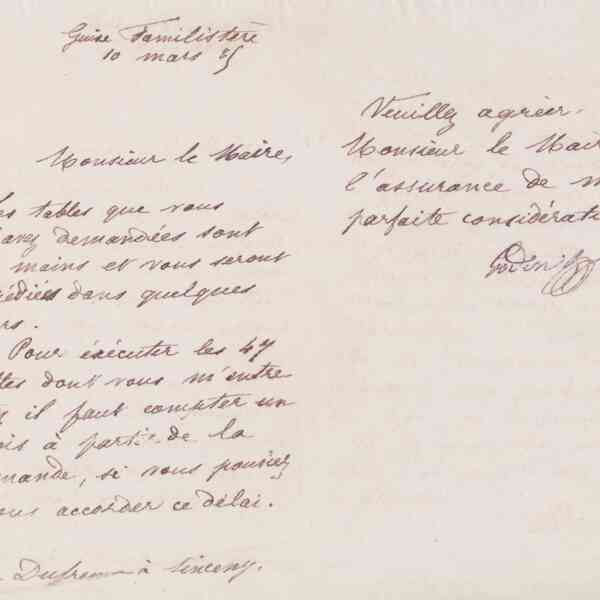 Guise Familistère
10 mars 85
Monsieur le Maire,
Les tables que vous
avez demandées sont
mains et vous seront
expédiées dans quelques
jours.
Pour exécuter les 47
dont vous m'entre
il faut compter un
mois à partir de la
demande, si vous pouviez
nous accorder ce délai.
à Sinceny.
Veuillez agréer,
Monsieur le Maire
l'assurance de m
parfaite considérati
Godin